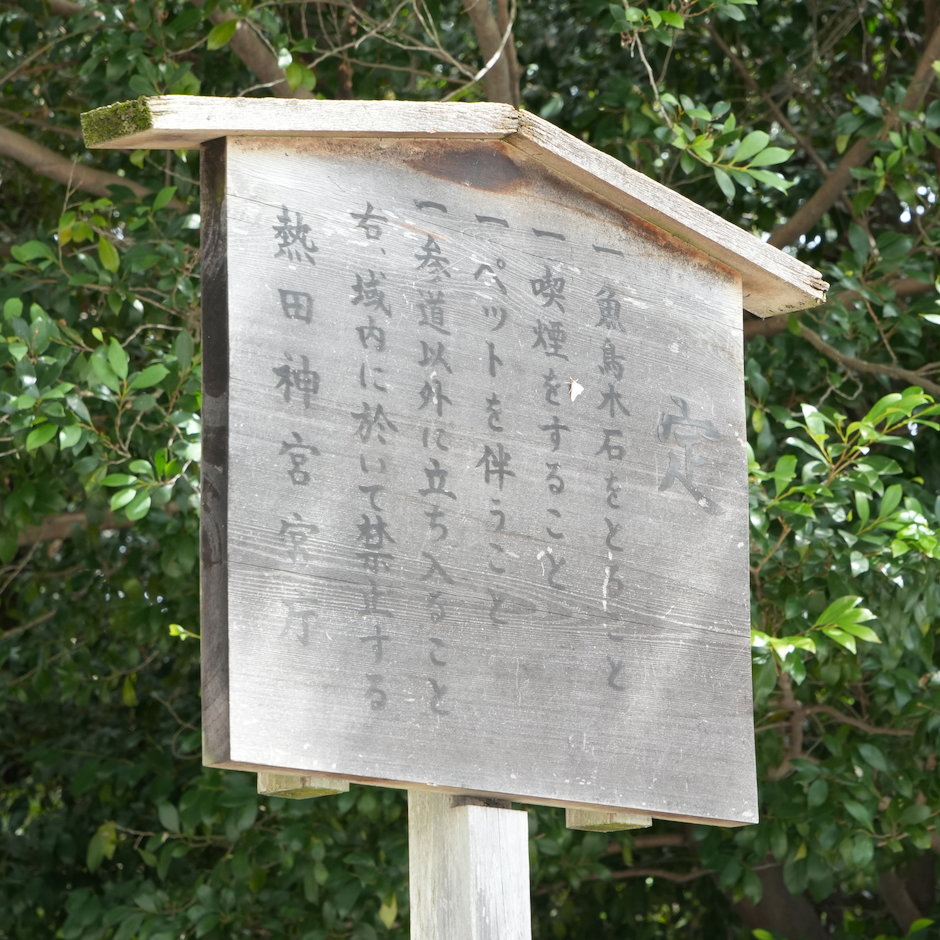 定
一 魚鳥木石をとること
一 喫煙をすること
一 ペットを伴うこと
一 参道以外に立ち入ること
右、域内に於いて禁止する
熱田神宮宮庁